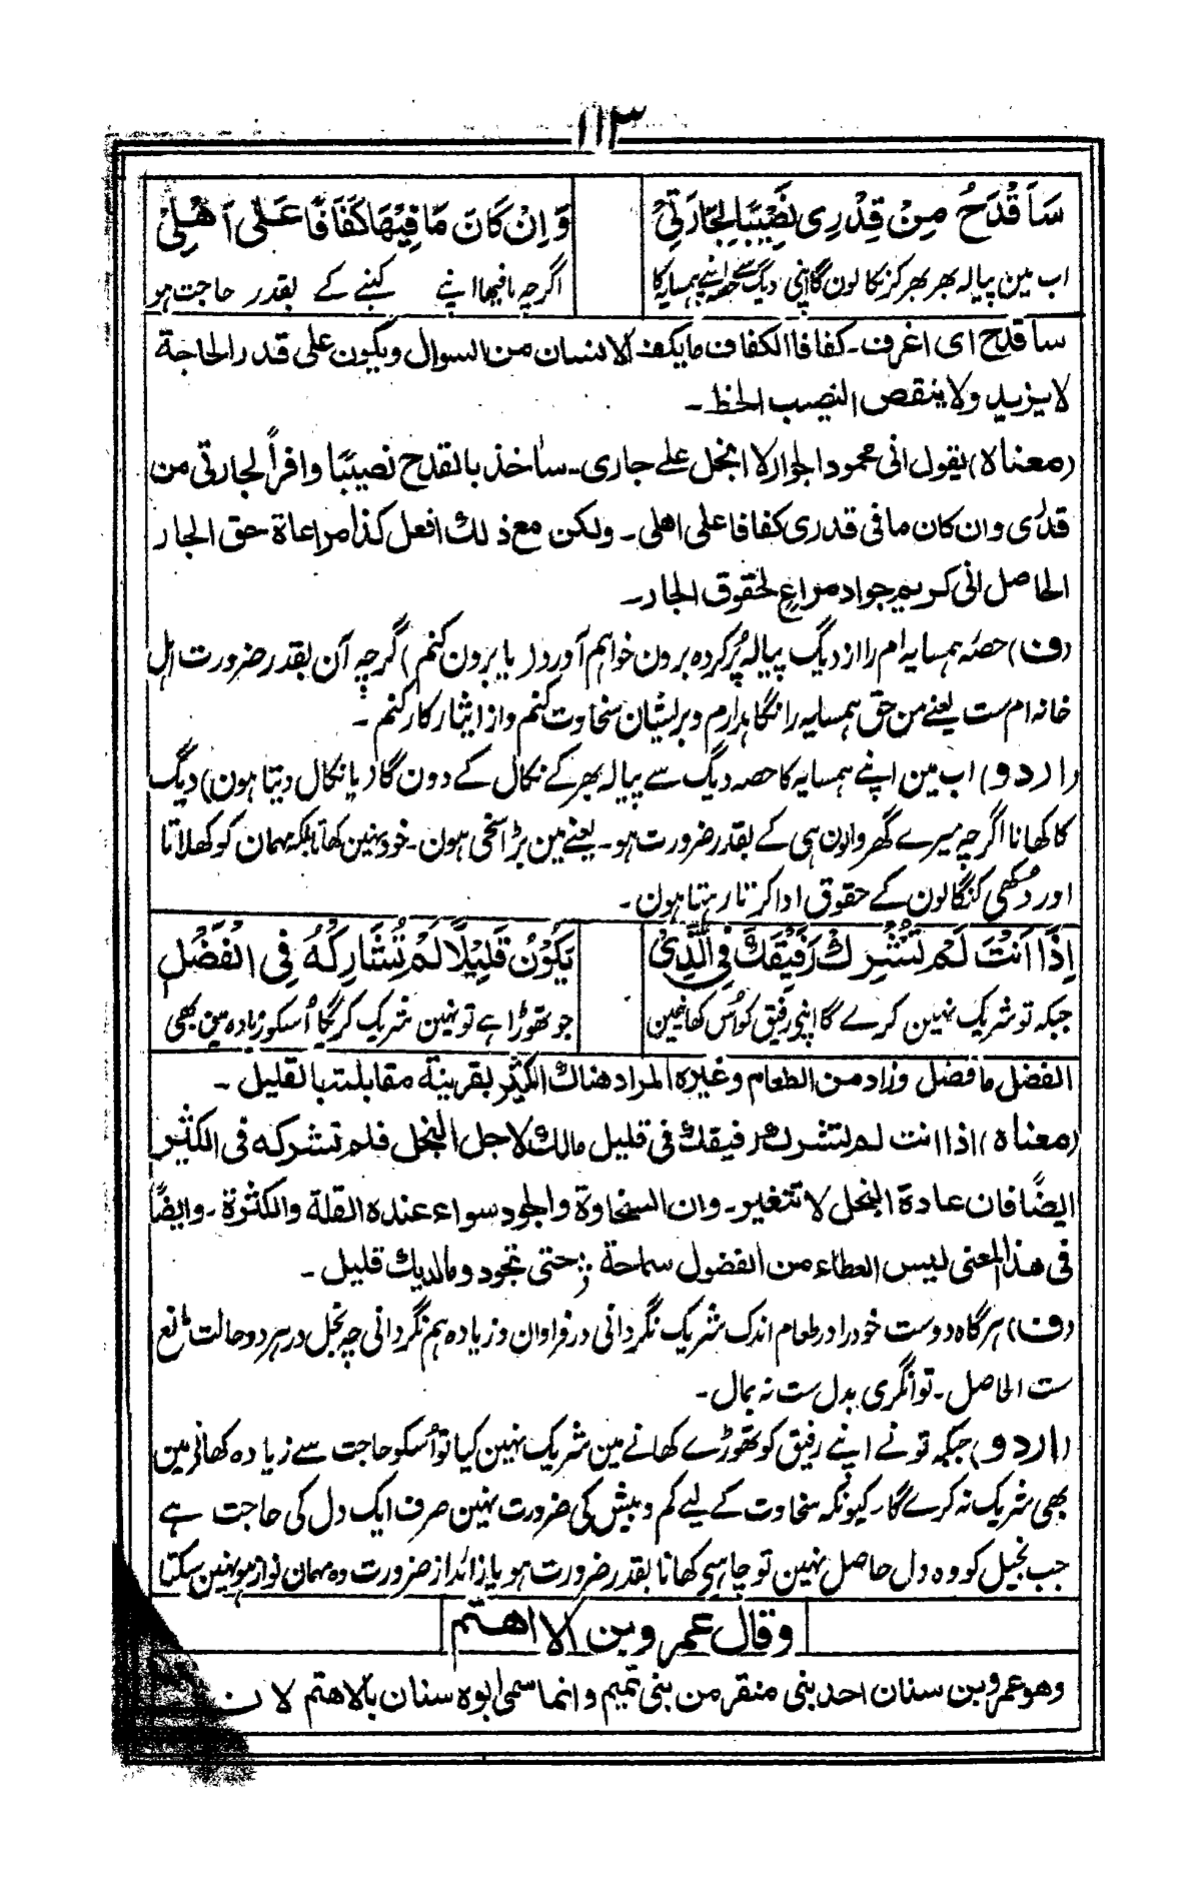 ١١٣
سَاَقْدَحُ مِنْ قِدْرِی نَصِیْبًا لِجَارَتِیْ
وَاِنْ کَانَ مَافِیْهَا کَفَافًا عَلٰی اَهْلِیْ
اب مین پیالہ بھر بھر کر نکالون گا اپنی دیگ سے حصہ اپنے ہمسایہ کا
اگرچہ مافیہا اپنے کنبے کے بقدر حاجت ہو
ساقدح ای اغرف۔ کفافا الکفاف مایکف الانسان من السوال ویکون علی قدر الحاجة
لایزید ولاینقص النصیب الحظ۔
(معناہ) یقول انی محمود الجوار لا ابخل علے جاری۔ ساٰخذ بالقدح نصیبًا وافراً لجارتی من
قدری وان کان مافی قدری کفافا علی اهلی۔ ولکن مع ذلك افعل کذا مراعاة حق الجار
الحاصل انی کریم جواد مراعٍ لحقوق الجار۔
(ف) حصّہ ہمسایہ ام را از دیگ پیالہ پُر کردہ برون خواہم آورد (یا برون کنم) گرچہ آن بقدر ضرورت اہل
خانہ ام ست یعنے من حق ہمسایہ را نگاہدارم و برایشان سخاوت کنم و از ایثار کار کنم۔
(اردو) اب مین اپنے ہمسایہ کا حصہ دیگ سے پیالہ بھر کے نکال کے دون گا (یا نکال دیتا ہون) دیگ
کا کھانا اگرچہ میرے گھر والون ہی کے بقدر ضرورت ہو۔ یعنے مین بڑا سخی ہون۔ خود نہین کھاتا بلکہ مہمان کو کھلاتا
اور دکھی کنگالون کے حقوق ادا کرتا رہتا ہون۔
اِذَا اَنْتَ لَمْ تُشْرِكْ رَفِیْقَكَ فِی الَّذِیْ
یَکُوْنُ قَلِیْلًا لَمْ تُشَارِکْهُ فِی الْفَضْلِ
جبکہ تو شریک نہین کرے گا اپنی رفیق کو اُس کھانیمین
جو تھوڑا ہے تو نہین شریک کریگا اُسکو زیادہ مین بھی
الفضل مافضل وزاد من الطعام وغیرہ المراد هناك الکثیر بقرینة مقابلته بالقلیل۔
(معناہ) اذا انت لم تشرك رفیقك فی قلیل مالك لاجل البخل فلم تشرکه فی الکثیر
ایضًا فان عادة البخل لا تتغیر۔ وان السخاوة والجود سواء عندہ القلة والکثرة۔ وایضًا
فی هذا المعنی لیس العطاء من الفضول سماحة ؛ حتی تجود ومالدیك قلیل۔
(ف) ہرگاہ دوست خود را در طعام اندک شریک نگردانی در فراوان و زیادہ ہم نگردانی چہ بخل در ہر دو حالت مانع
ست الحاصل۔ توانگری بدل ست نہ بمال۔
(اردو) جبکہ تو نے اپنے رفیق کو تھوڑے کھانے مین شریک نہین کیا تو اُسکو حاجت سے زیادہ کھانے مین
بھی شریک نہ کرے گا۔ کیونکہ سخاوت کے لیے کم و بیش کی ضرورت نہین صرف ایک دل کی حاجت ہے
جب بخیل کو وہ دل حاصل نہین تو چاہے کھانا بقدر ضرورت ہو یا زائد از ضرورت وہ مہمان نواز ہو نہین سکتا
وقال عمرو بن الاهتم
وهو عمرو بن سنان احد بنی منقر من بنی تمیم وانما سمی ابوہ سنان بالاهتم لان